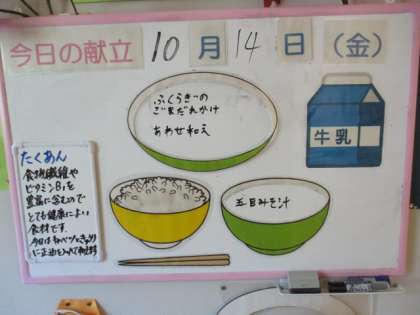 今日の献立 10月14日(金)
ふくらぎの
ごまだれかけ
あわせ和え
牛乳
五目みそ汁
たくあん
食物繊維や
ビタミンB1を
豊富に含むので
とても健康によい
食材です。
今日はキャベツときゅうり